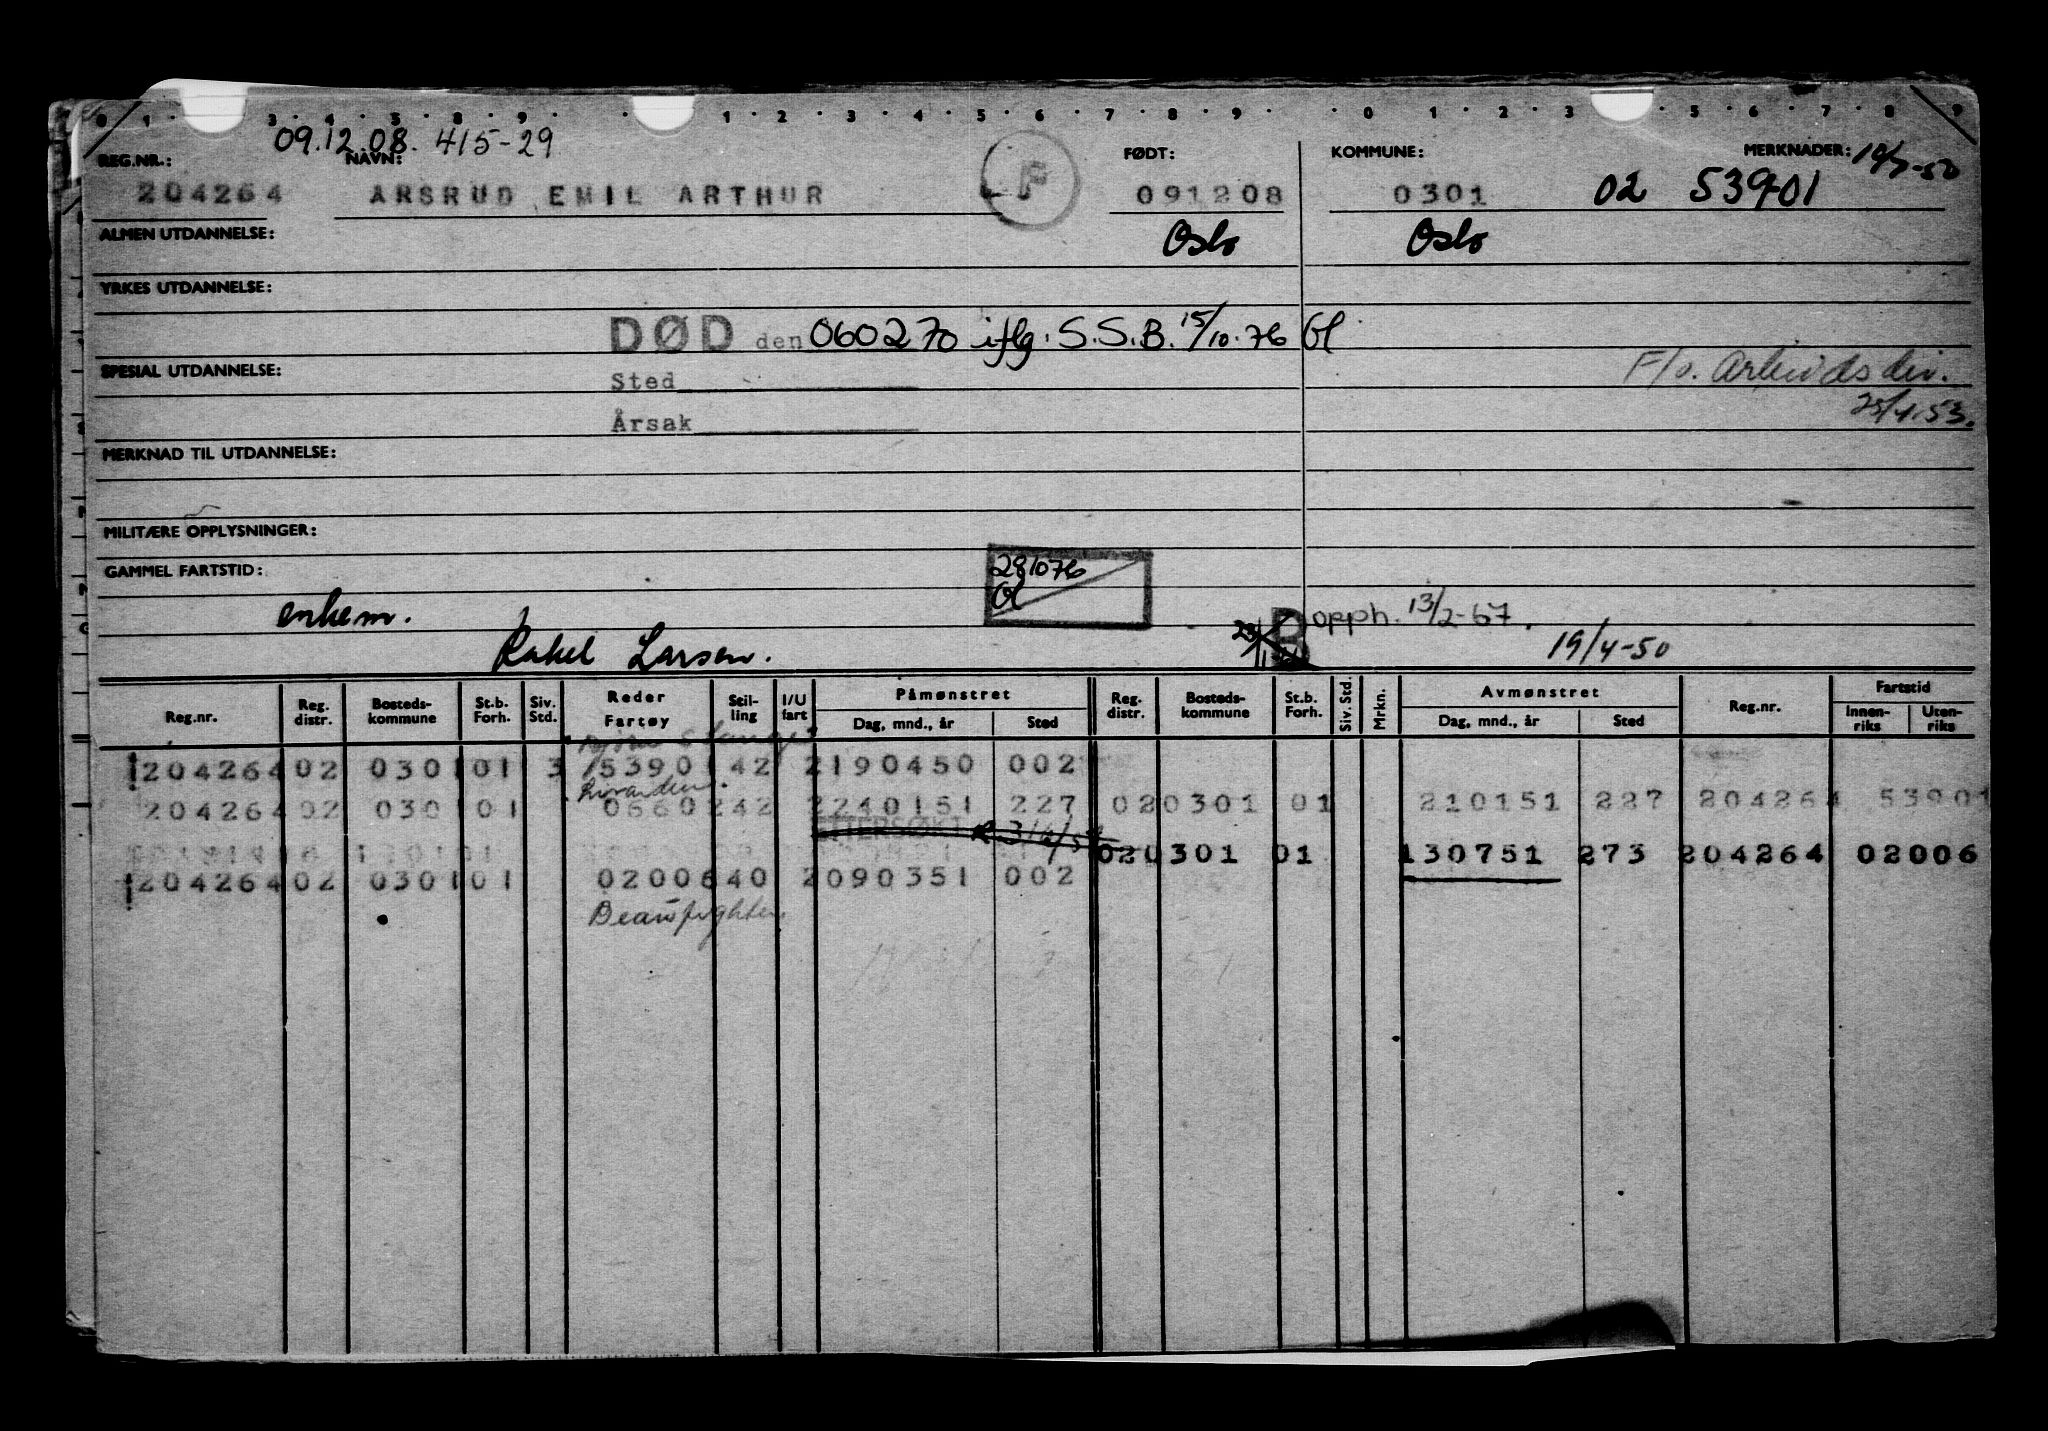 09.12.08. 415-29
REG.NR.: NAVN: FØDT: KOMMUNE: MERKNADER:
204264 ARSRUD EMIL ARTHUR F 091208 0301 02 53901
ALMEN UTDANNELSE: Oslo Oslo
YRKES UTDANNELSE:
DØD den 060270 iflg. S.S.B. 15/10.76 Gl
SPESIAL UTDANNELSE: Sted F/o. Arbeidsdir.
Årsak 25/4.53.
MERKNAD TIL UTDANNELSE:
MILITÆRE OPPLYSNINGER:
GAMMEL FARTSTID: 281076
enkem. Gl B opph. 13/2-67.
Rakel Larsen. 19/4-50
Reg.nr. Reg. distr. Bosteds-kommune St.b. Forh. Siv. Std. Reder Fartøy Stil-ling I/U fart Påmønstret Dag, mnd., år Sted Reg. distr. Bosteds-kommune St.b. Forh. Siv. Std. Mrkn. Avmønstret Dag, mnd., år Sted Reg.nr. Fartstid Innen-riks Uten-riks
204264 02 0301 01 3 53901 42 2 190450 002
204264 02 0301 01 06602 42 2 240151 227 02 0301 01 210151 227 204264 53901
ETTERSØKT
02 0301 01 130751 273 204264 02006
204264 02 0301 01 02006 40 2 090351 002
Beaufighter